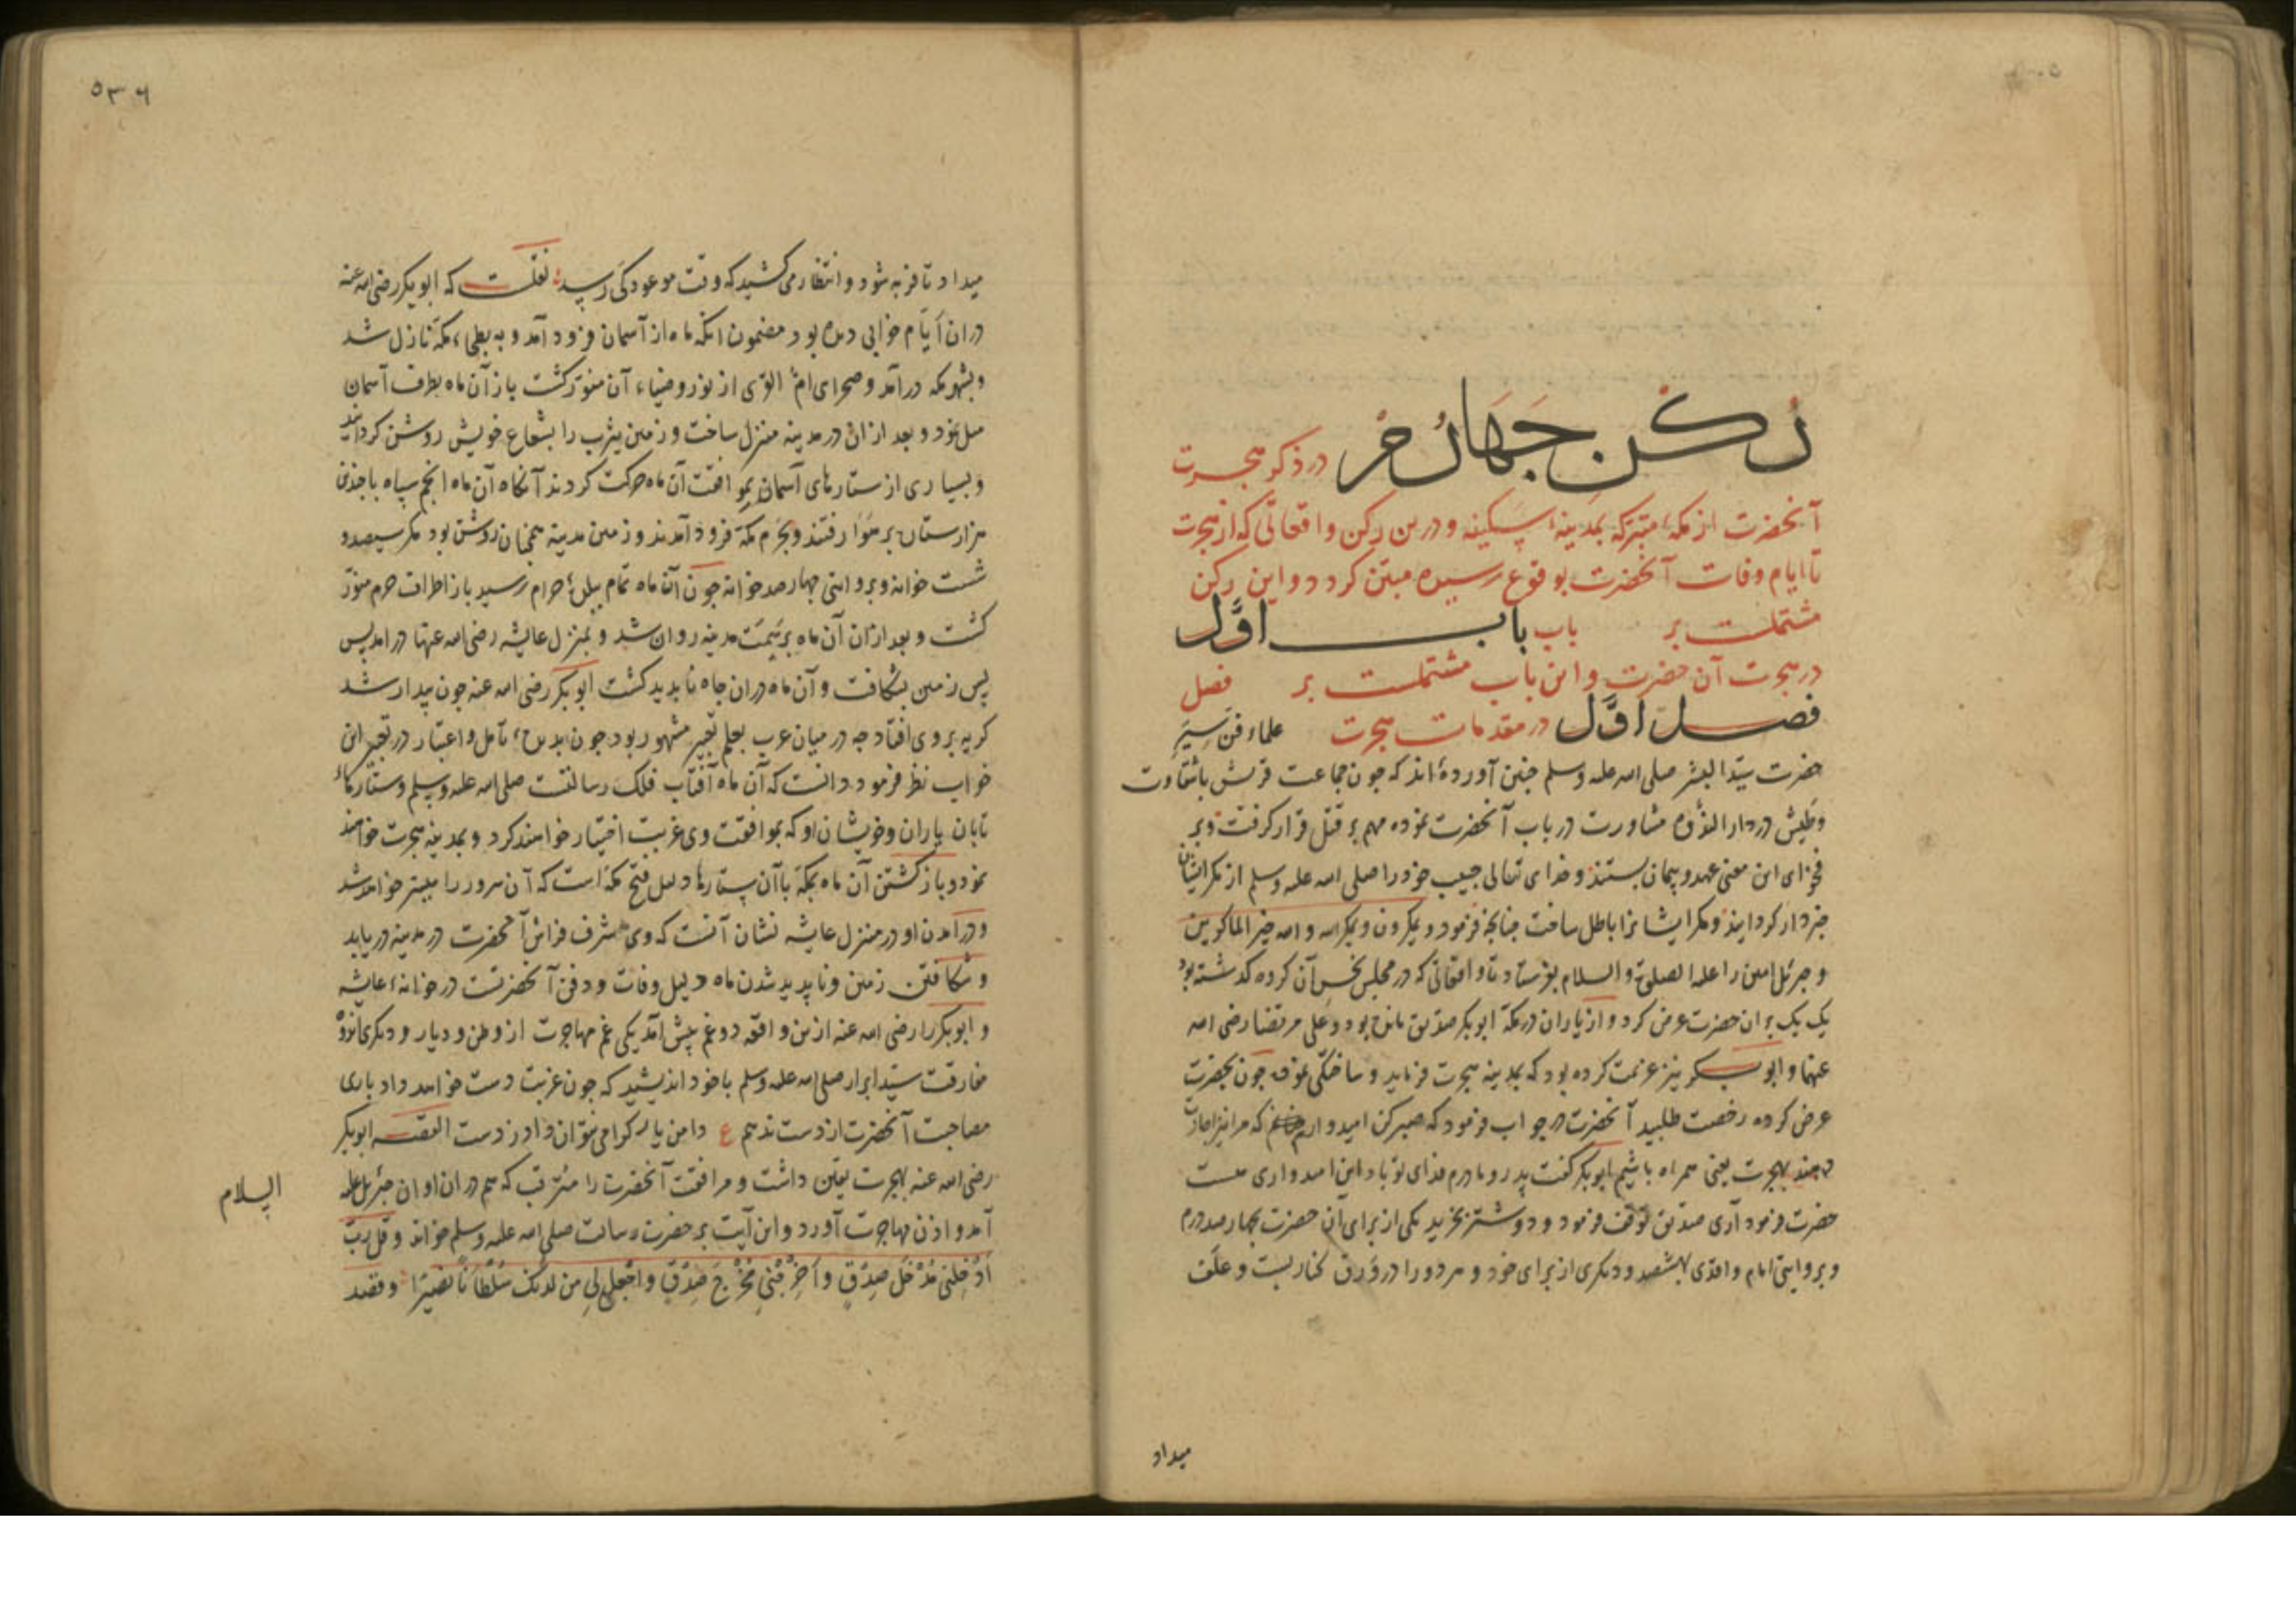 رکن چهارم در ذکر هجرت
آنحضرت از مکهٔ متبرکه بمدینهٔ سکینه و درین رکن واقعاتی که از هجرت
تا ایام وفات آنحضرت بوقوع رسیده مبیّن کردد و این رکن
مشتملست بر باب باب اوّل
در هجرت آن حضرت و این باب مشتملست بر فصل
فصل اوّل در مقدمات هجرت علماء فنّ سیَرِ
حضرت سیّد البشر صلی الله علیه وسلم چنین آورده‌اند که جون جماعت قریش باشقاوت
وطیش در دار الندوه مشاورت در باب آنحضرت نموده مهم بر قتل قرار کرفت و بر
فحوای این معنی عهد و پیمان بستند و خدای تعالی حبیب خود را صلی الله علیه وسلم از مکر ایشان
خبردار کردانید و مکر ایشانرا باطل ساخت چنانچه فرمود و یمکرون ویمکر الله والله خیر الماکرین
و جبرئیل امین را علیه الصلوة والسلام بفرستاد تا واقعاتی که در مجلس نحس آن کروه کذشته بود
یک یک بر آن حضرت عرض کرد و از یاران در مکة ابوبکر صدیق مانده بود و علی مرتضا رضی الله
عنهما و ابوبکر نیز عزیمت کرده بود که بمدینه هجرت فرماید و ساختکی نموده جون بحضرت
عرض کرده رخصت طلبید آنحضرت در جواب فرمود که صبر کن امیدوارم که مرا نیز اجازت
دهند بهجرت یعنی همراه باشیم ابوبکر کفت پدر و مادرم فدای تو باد این امیدواری هست
حضرت فرمود آری صدیق توقف فرمود و دو شتر بخرید یکی از برای آن حضرت بچهار صد درم
و بروایتی امام واقدی بهشتصد و دیکری از برای خود و هر دو را در وَرَق کنار بست و علَف
میداد
۵۳۶
میداد تا فربه شود و انتظار می کشید که وقت موعود کَی رسد نقلست که ابوبکر رضی الله عنه
در ان ایّام خوابی دیده بود مضمون انکه ماه از آسمان فرود آمد و به بطحاء مکّه نازل شد
و بشهر مکه درآمد و صحرای امّ القری از نور وضیاء آن منوّر کشت باز آن ماه بطرف آسمان
میل نمود و بعد از ان در مدینه منزل ساخت و زمین یثرب را بشعاع خویش روشن کردانید
و بسیاری از ستارهای آسمان بموافقت آن ماه حرکت کردند آنکاه آن ماه انجم سپاه با چندین
هزار ستاره بر هوا رفتند و بحَرَم مکّه فرود آمدند و زمین مدینه همچنان روشن بود مکر سیصد و
شست خوانه و بروایتی چهار صد خوانه جون آن ماه تمام ببلدۀ حرام رسید باز اطراف حرم منوّر
کشت و بعد از ان آن ماه بر سِمْت مدینه روان شد و بمنزل عایشه رضی الله عنها درامد پس
پس زمین بشکافت و آن ماه در ان چاه ناپدید کشت ابوبکر رضی الله عنه جون بیدار شد
کریه بر وی افتاد چه در میان عرب بعلم تعبیر مشهور بود جون بدیدۀ تامل و اعتبار در تعبیر این
خواب نظر فرمود دانست که آن ماه آفتاب فلک رسالتست صلی الله علیه وسلم و ستارهاء
تابان یاران و خویشان او که بموافقت وی غربت اختیار خواهند کرد و بمدینه هجرت خواهند
نمود و باز کشتن آن ماه بمکّه با آن ستارها دلیل فتح مکّه است که آن سرور را میسّر خواهد شد
و درآمدن او در منزل عایشه نشان آنست که وی شرف فراش آنحضرت در مدینه دریابد
و شکافتن زمین و ناپدید شدن ماه دلیل وفات و دفن آنحضرتست در خوانۀ عایشه
و ابوبکر را رضی الله عنه ازین واقعه دو غم پیش آمد یکی غم مهاجرت از وطن و دیار و دیکری اندوه
مفارقت سیّد ابرار صلی الله علیه وسلم با خود اندیشید که جون غربت دست خواهد داد باری
مصاحبت آنحضرت از دست ندهم ع دامن یار کرامی نتوان داد ز دست القصه ابوبکر
رضی الله عنه بهجرت یقین داشت و مرافقت آنحضرت را مترقب که هم در ان اوان جبرئیل علیه
السلام
آمد و اذن مهاجرت آورد و این آیت بر حضرت رسالت صلی الله علیه وسلم خواند وقل ربّ
اَدْخِلْنی مُدْخَلَ صِدْقٍ واَخْرِجْنی مُخْرَجَ صِدْقٍ واجْعَل لی من لدنک سُلْطَانًا نَصِیرًا وقصد